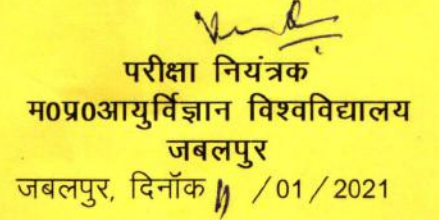 परीक्षा नियंत्रक
म0प्र0आयुर्विज्ञान विश्वविद्यालय
जबलपुर
जबलपुर, दिनॉक /01/2021